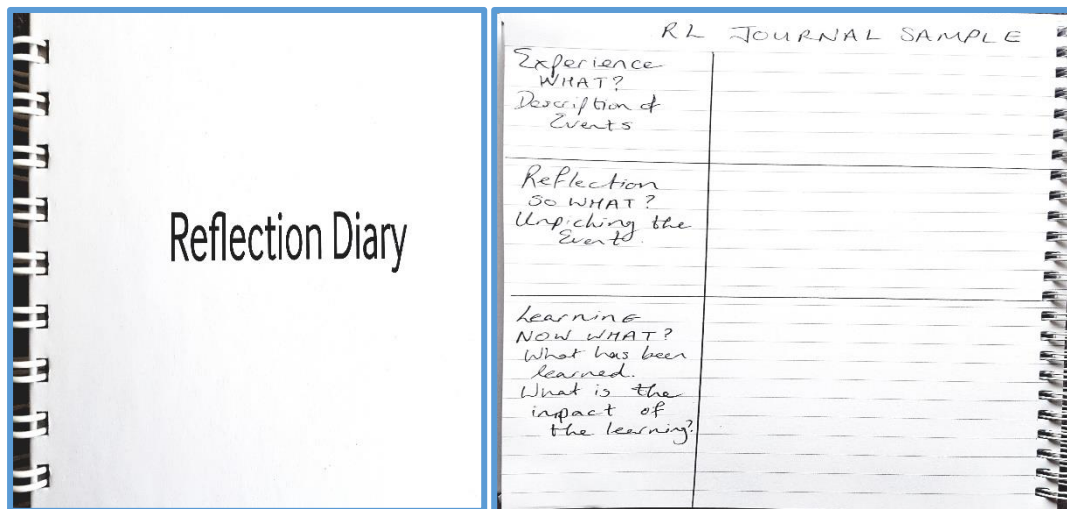 Reflection Diary
RL JOURNAL SAMPLE
Experience
WHAT?
Description of
Events
Reflection
SO WHAT?
Unpicking the
Event.
Learning
NOW WHAT?
What has been
learned.
What is the
impact of
the learning?